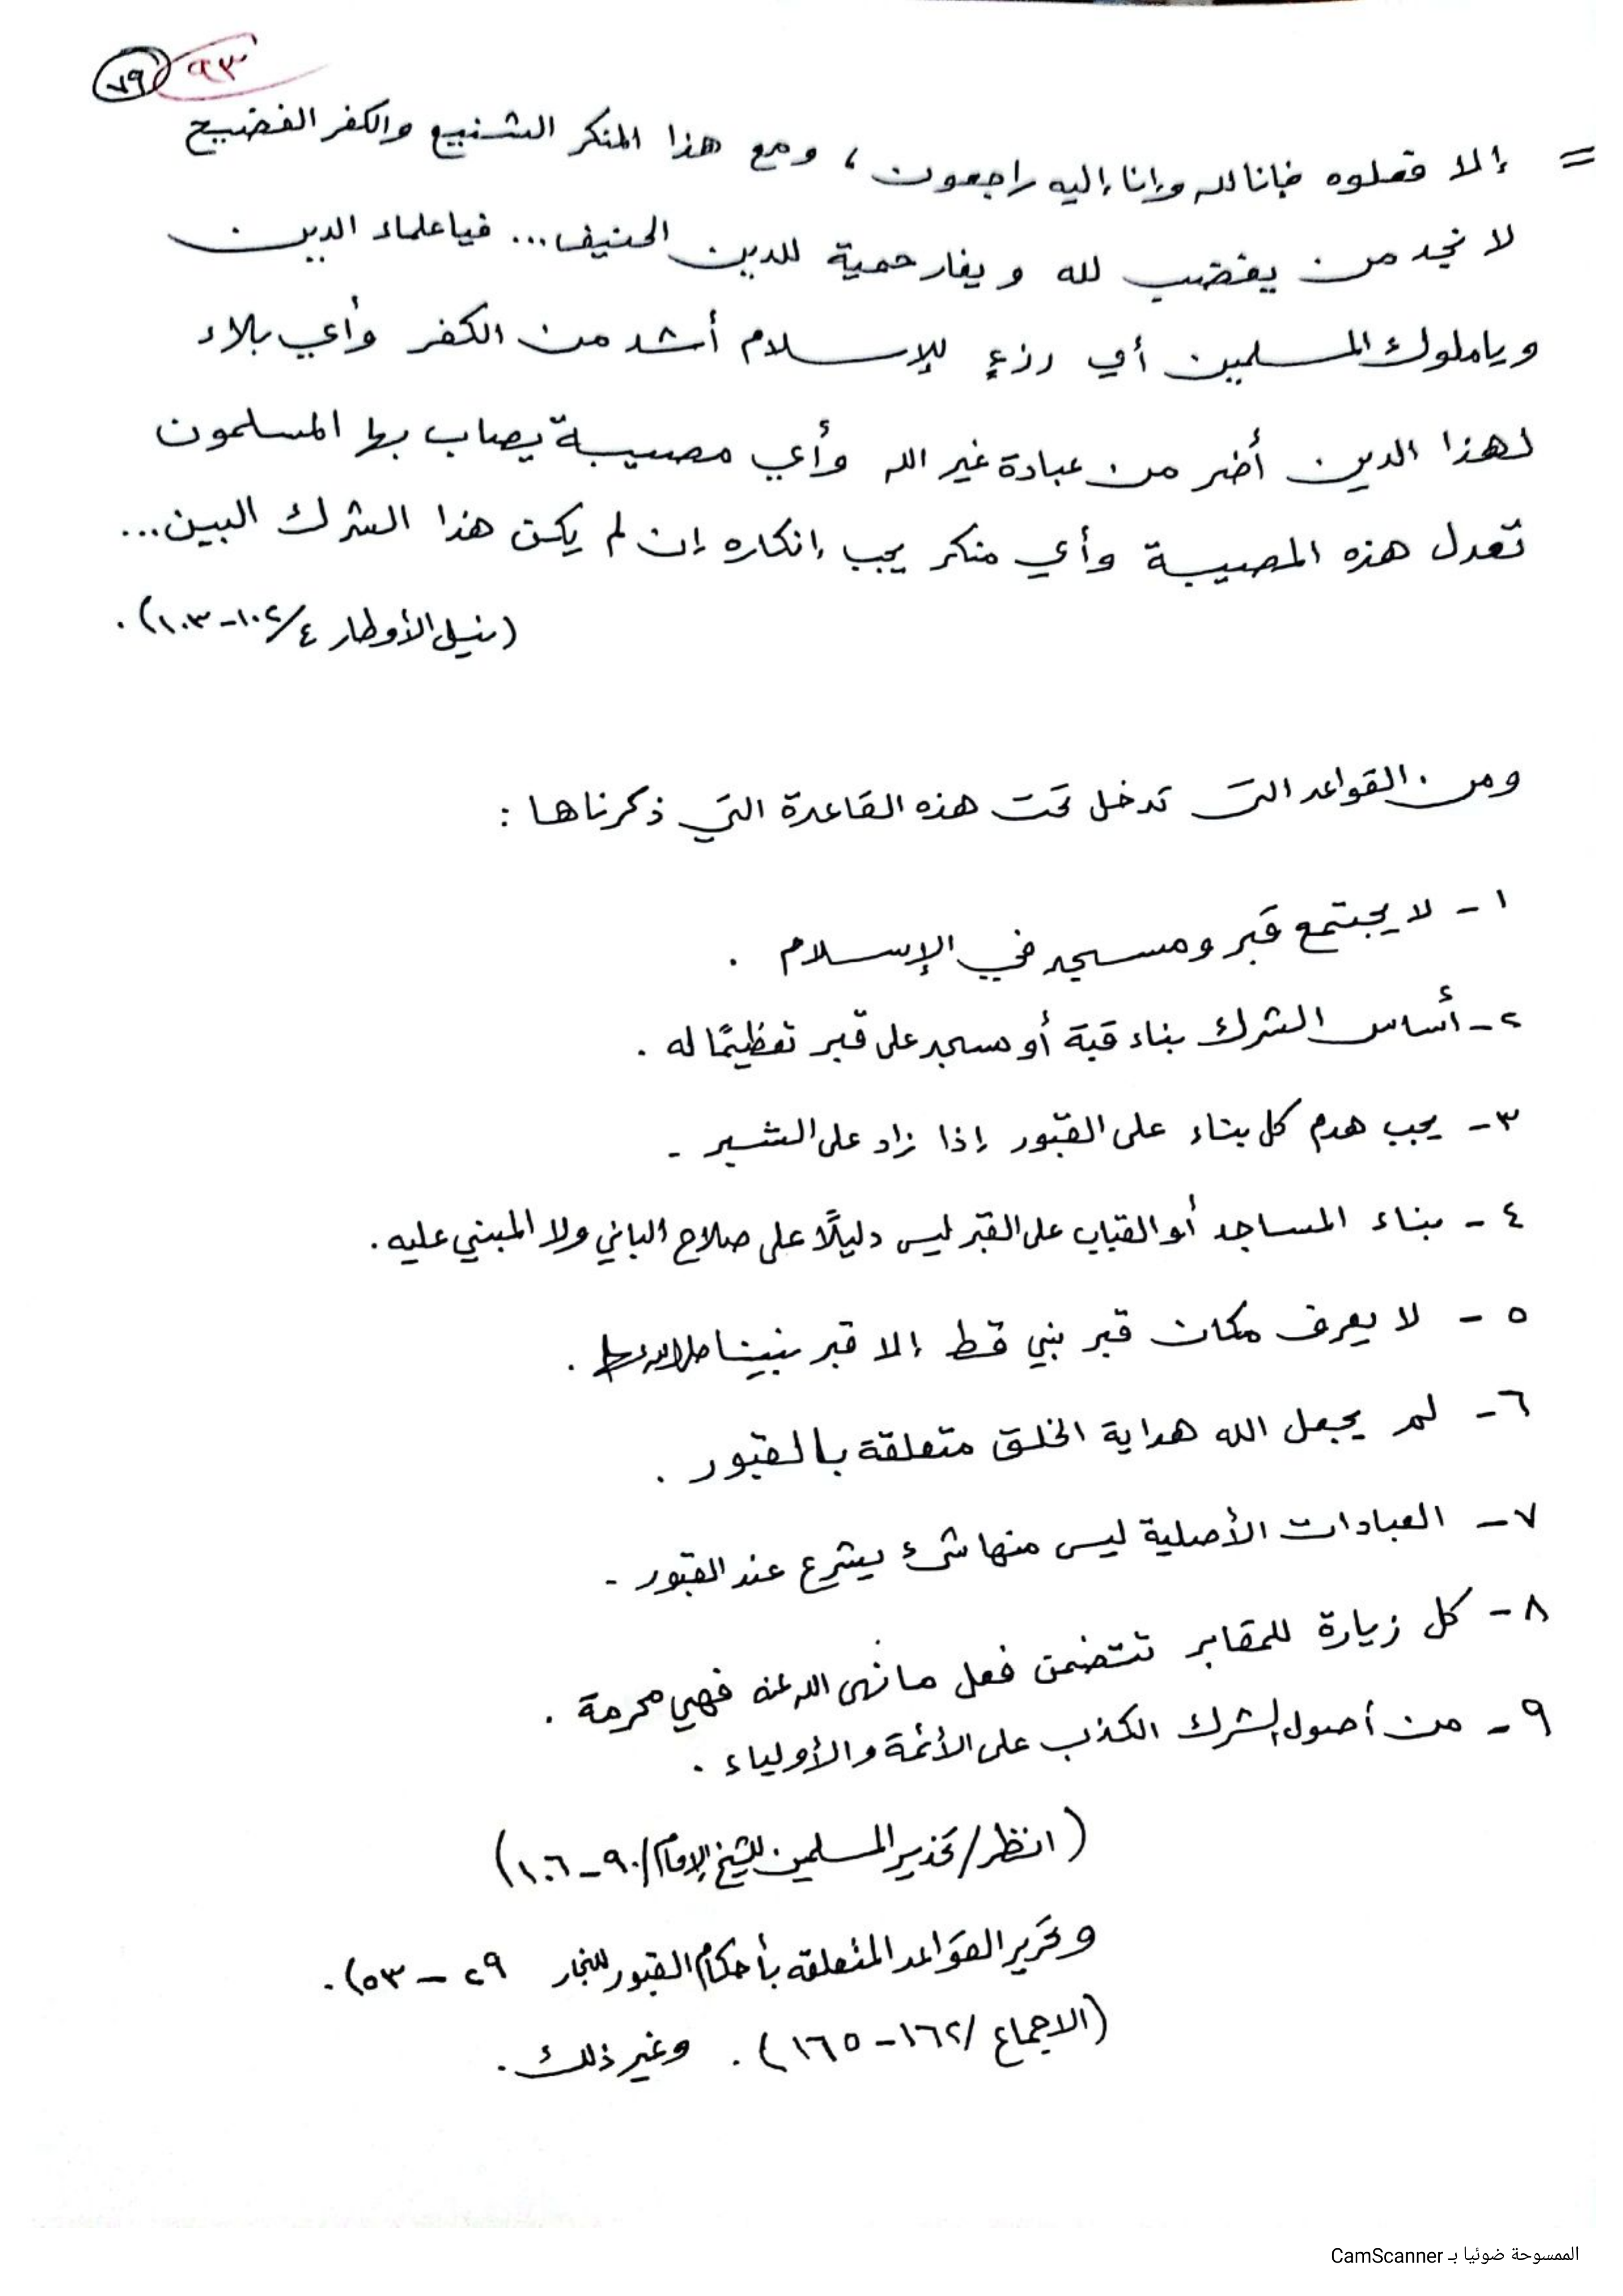 ٩٣ ٧٩
= إلا فعلوه فإنا لله وإنا إليه راجعون، ومع هذا المنكر الشنيع والكفر الفضيح
لا نجد من يغضب لله ويغار حمية للدين الحنيف... فيا علماء الدين
ويا ملوك المسلمين أي رزءٍ للإسلام أشد من الكفر وأي بلاء
لهذا الدين أضر من عبادة غير الله وأي مصيبة يصاب بها المسلمون
تعدل هذه المصيبة وأي منكر يجب إنكاره إن لم يكن هذا الشرك البين...
(نيل الأوطار ٤/١٠٢-١٠٣).
ومن القواعد التي تدخل تحت هذه القاعدة التي ذكرناها:
١- لا يجتمع قبر ومسجد في الإسلام.
٢- أساس الشرك بناء قبة أو مسجد على قبر تعظيمًا له.
٣- يجب هدم كل بناء على القبور إذا زاد على الشبر-
٤- بناء المساجد أو القباب على القبر ليس دليلًا على صلاح الباني ولا المبني عليه.
٥- لا يعرف مكان قبر نبي قط إلا قبر نبينا صلى الله عليه وسلم.
٦- لم يجعل الله هداية الخلق متعلقة بالقبور.
٧- العبادات الأصلية ليس منها شئ يشرع عند القبور-
٨- كل زيارة للمقابر تتضمن فعل ما نهى الله عنه فهي محرمة.
٩- من أصول الشرك الكذب على الأئمة والأولياء.
(انظر/ تحذير المسلمين للشيخ الإمام/ ٩٠-١٠٦)
وتحرير القواعد المتعلقة بأحكام القبور للنجار ٢٩-٥٣).
(الاجماع /١٦٢-١٦٥). وغير ذلك.
الممسوحة ضوئيا بـ CamScanner